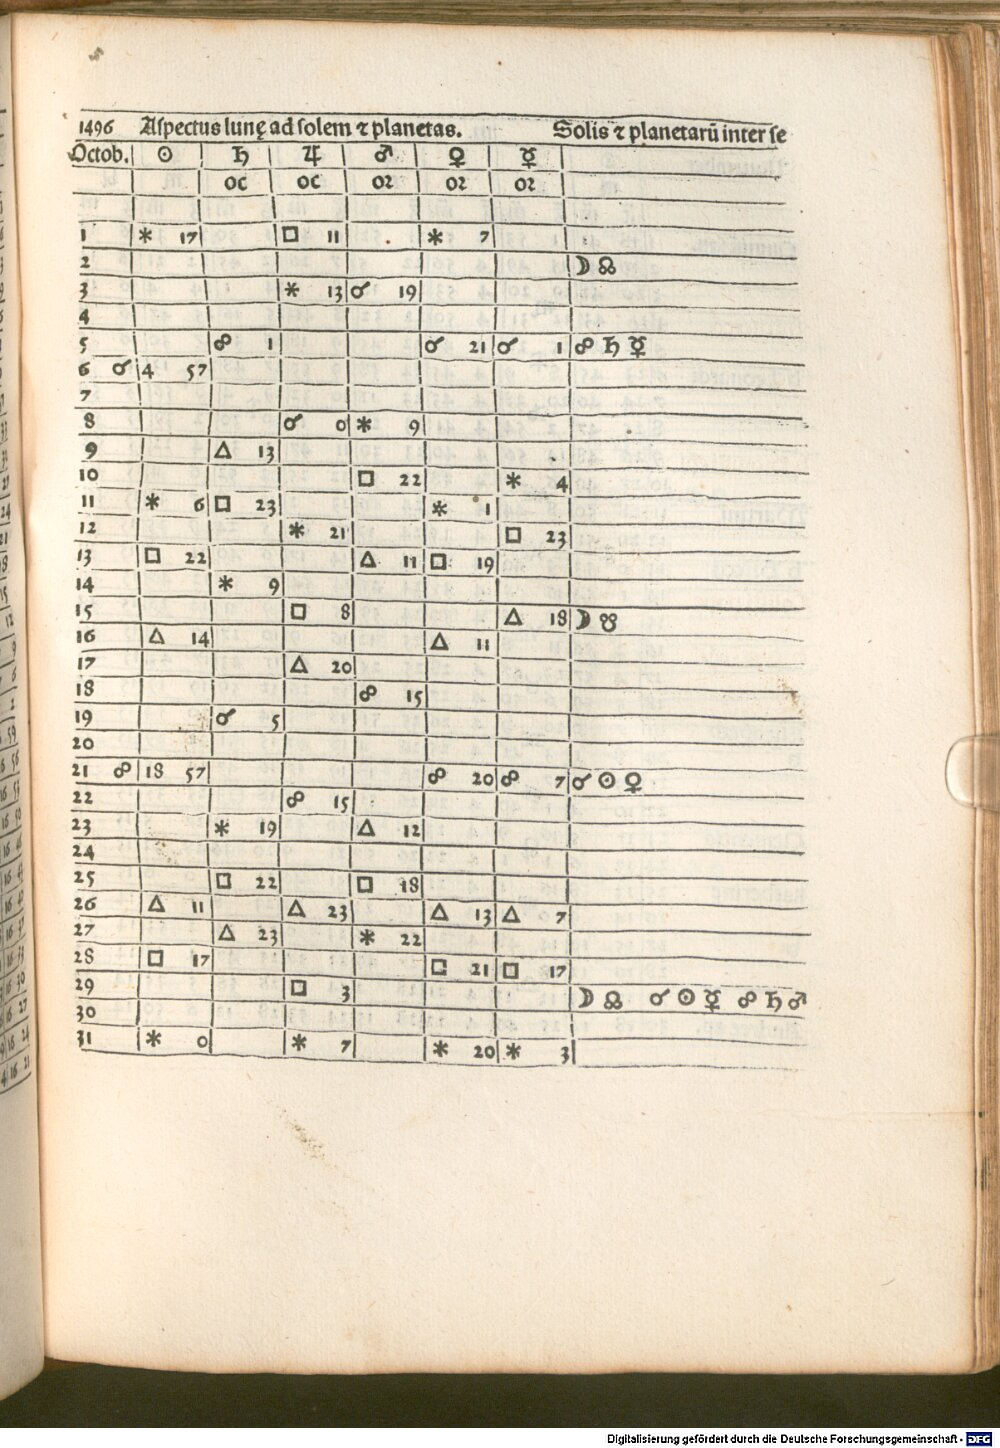 1496 Aspectus lunę ad solem ⁊ planetas. Solis ⁊ planetarū inter se
Octob. ☉ ♄ ♃ ♂ ♀ ☿
oc oc oꝛ oꝛ oꝛ
1 ⚹ 17 □ 11 ⚹ 7
2 ☽ ☊
3 ⚹ 13 ☌ 19
4
5 ☍ 1 ☌ 21 ☌ 1 ☍ ♄ ☿
6 ☌ 4 57
7
8 ☌ 0 ⚹ 9
9 △ 13
10 □ 22 ⚹ 4
11 ⚹ 6 □ 23 ⚹ 1
12 ⚹ 21 □ 23
13 □ 22 △ 11 □ 19
14 ⚹ 9
15 □ 8 △ 18 ☽ ☋
16 △ 14 △ 11
17 △ 20
18 ☍ 15
19 ☌ 5
20
21 ☍ 18 57 ☍ 20 ☍ 7 ☌ ☉ ♀
22 ☍ 15
23 ⚹ 19 △ 12
24
25 □ 22 □ 18
26 △ 11 △ 23 △ 13 △ 7
27 △ 23 ⚹ 22
28 □ 17 □ 21 □ 17
29 □ 3 ☽ ☊ ☌ ☉ ☿ ☍ ♄ ♂
30
31 ⚹ 0 ⚹ 7 ⚹ 20 ⚹ 3
Digitalisierung gefördert durch die Deutsche Forschungsgemeinschaft - DFG